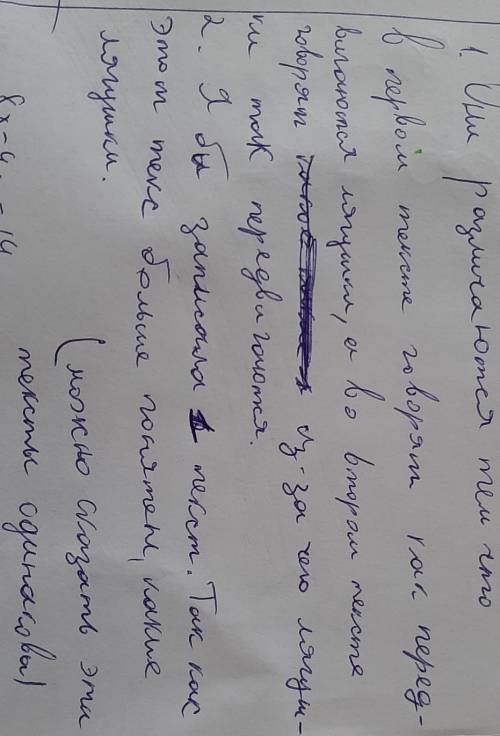 1. Они различаются тем что
в первом тексте говорят как перед-
вигаются лягушки, а во втором тексте
говорят из-за чего лягуш-
ки так передвигаются.
2. Я бы записала 1 текст. Так как
этот текс больше понятен, какие
лягушки.
(можно сказать эти
тексты одинаковы)